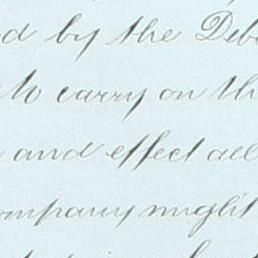 d by the Deb
to carry on th
and effect all
ompany might